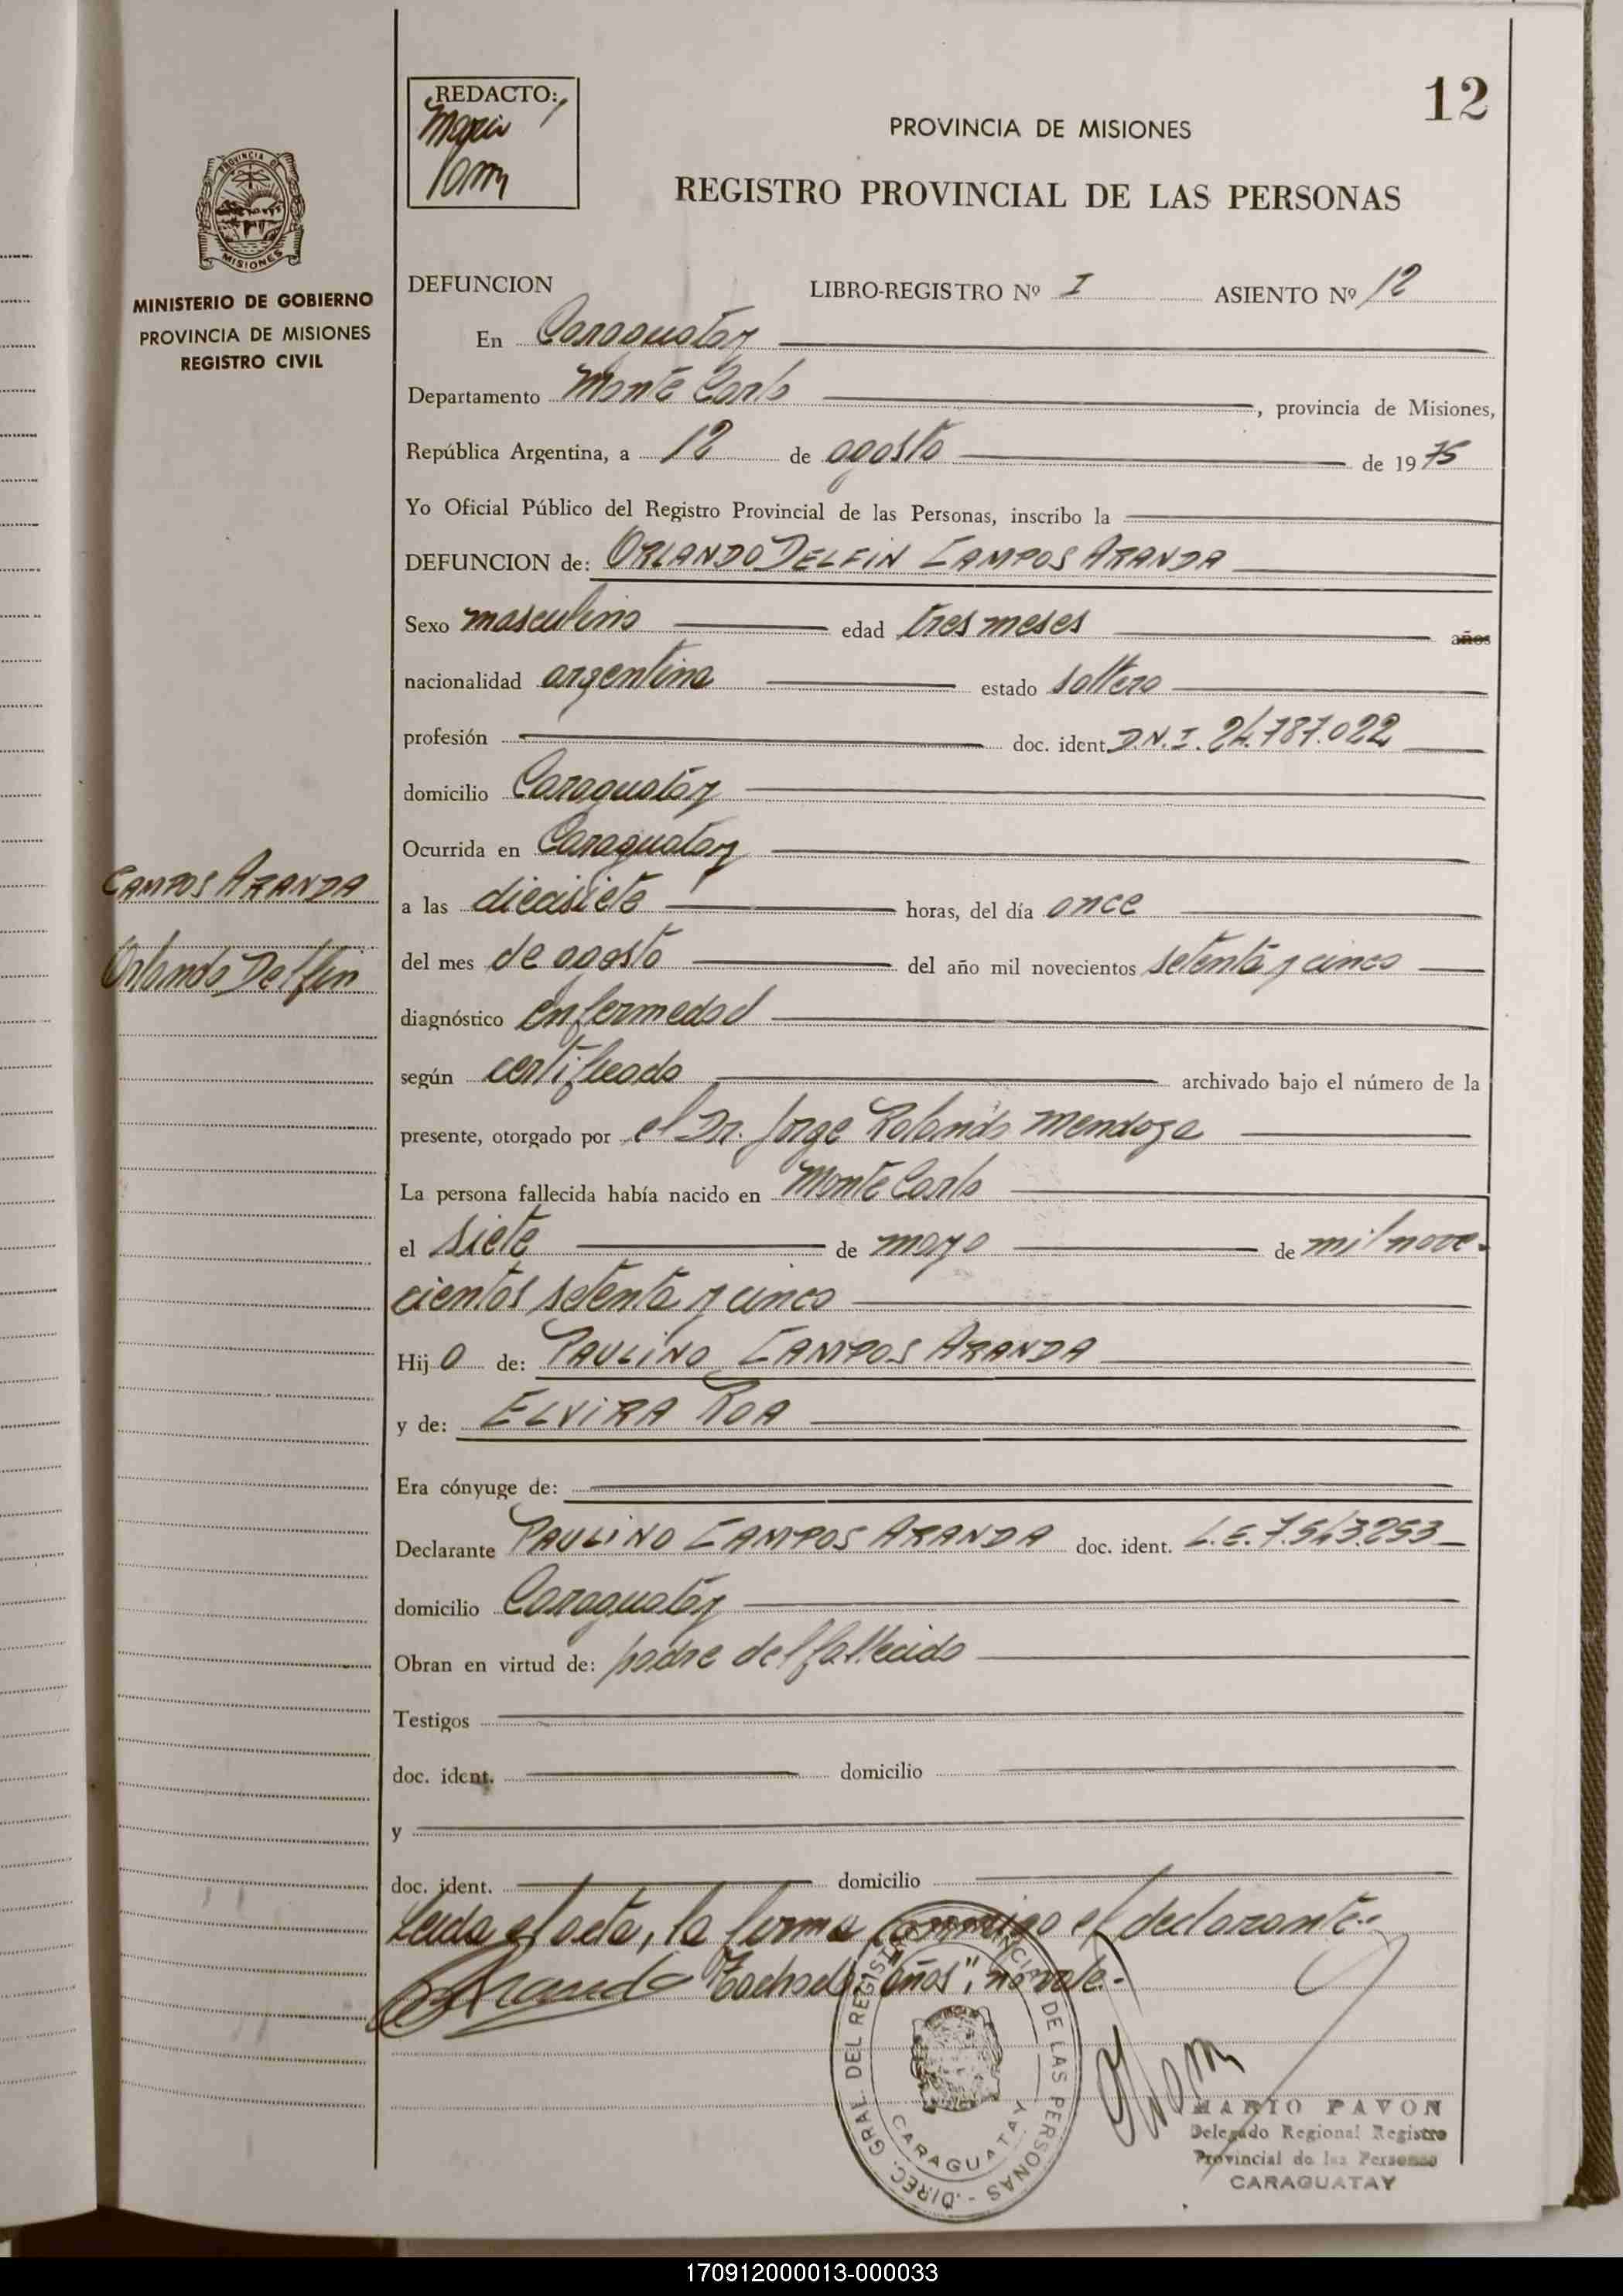 12
REDACTO:
Mario
PROVINCIA DE MISIONES
REGISTRO PROVINCIAL DE LAS PERSONAS
PROVINCIA DE
MISIONES
MINISTERIO DE GOBIERNO
PROVINCIA DE MISIONES
REGISTRO CIVIL
DEFUNCION LIBRO-REGISTRO Nº I ASIENTO Nº 12
En Caraguatay
Departamento Monte Carlo, provincia de Misiones,
República Argentina, a 12 de agosto de 1975
Yo Oficial Público del Registro Provincial de las Personas, inscribo la
DEFUNCION de: ORLANDO DELFIN CAMPOS ARANDA
Sexo masculino edad tres meses años
nacionalidad argentina estado soltero
profesión doc. ident. D.N.I. 24.787.022
domicilio Caraguatáy
Ocurrida en Caraguatay
CAMPOS ARANDA
Orlando Delfin
a las diecisiete horas, del día once
del mes de agosto del año mil novecientos setenta y cinco
diagnóstico enfermedad
según certificado archivado bajo el número de la
presente, otorgado por el Dr. Jorge Rolando Mendoza
La persona fallecida había nacido en Monte Carlo
el siete de mayo de mil nove-
cientos setenta y cinco
Hijo de: PAULINO CAMPOS ARANDA
y de: ELVIRA ROA
Era cónyuge de:
Declarante PAULINO CAMPOS ARANDA doc. ident. L.E. 7.543.253
domicilio Caraguatáy
Obran en virtud de: padre del fallecido
Testigos
doc. ident. domicilio
y
doc. ident. domicilio
Leida el acta, la firma conmigo el declarante.-
Tachado: "años": no vale.-
DIREC. GRAL. DEL REGISTRO PROVINCIAL DE LAS PERSONAS -
CARAGUATAY
MARIO PAVON
Delegado Regional Registro
Provincial de las Personas
CARAGUATAY
170912000013-000033